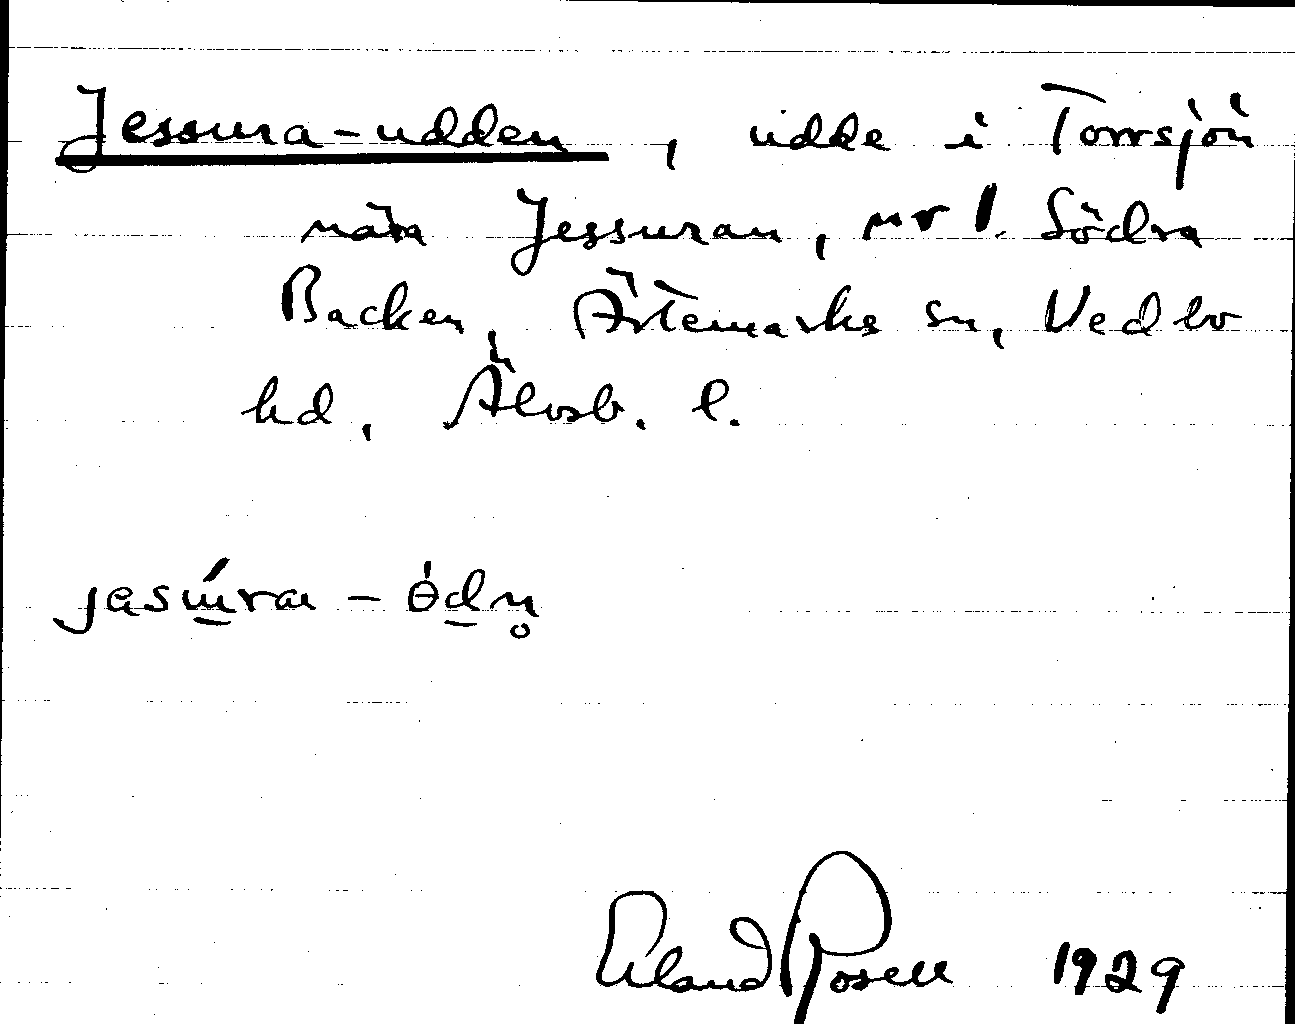 Jessura-udden, udde i Torrsjön
nära Jessuran, nr 1. Södra
Backen, Ärtemarks sn, Vedbo
hd, Älvsb. l.
Erland Rosell 1929